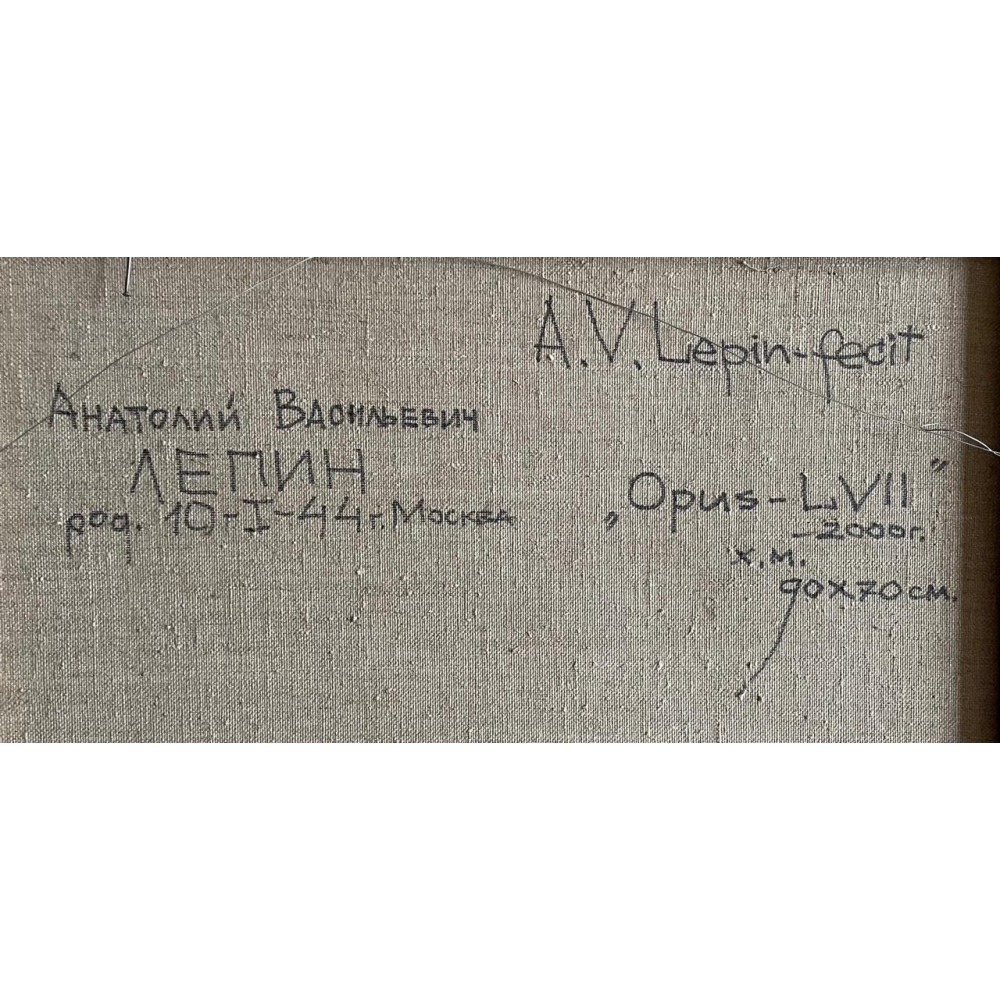 A.V. Lepin-fecit
Анатолий Васильевич
ЛЕПИН
род. 10-I-44г. Москва
„Opus-LVII"
-2000г.
х.м.
90х70см.